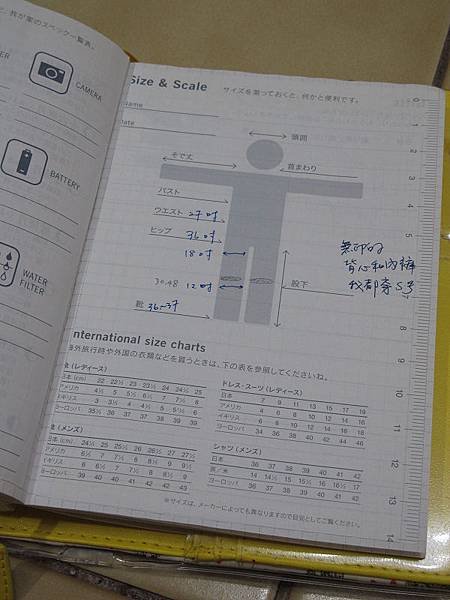 、我が家のスペック一覧表。
CAMERA
BATTERY
WATER
FILTER
Size & Scale
サイズを測っておくと、何かと便利です。
Name
Date
頭囲
そで丈
首まわり
バスト
ウエスト 27吋
ヒップ 36吋
18吋
30.48 12吋
股下
靴 36~37
無印的
背心和內褲
我都穿S号
International size charts
海外旅行時や外国の衣類などを買うときは、下の表を参照してくださいね。
(レディース)
日本 (cm) 22 22½ 23 23½ 24 24½ 25
アメリカ 4½ 5 5½ 6 7 7½ 8
イギリス 3 3½ 4 4½ 5 5½ 6
ヨーロッパ 35½ 36 37 37 38 39 39
ドレス・スーツ (レディース)
日本 7 9 11 13 15 17 19
アメリカ 4 6 8 10 12 14 16
イギリス 6 8 10 12 14 16 18
ヨーロッパ 34 36 38 40 42 44 46
(メンズ)
日本 (cm) 24½ 25 25½ 26 26½ 27 27½
アメリカ 6½ 7 7½ 8 8½ 9 9½
イギリス 6 6½ 7 7½ 8 8½ 9
ヨーロッパ 39 40 40 41 42 42 43
シャツ (メンズ)
日本 36 37 38 39 40 41 42
英/米 14 14½ 15 15½ 16 16½ 17
ヨーロッパ 36 37 38 39 40 41 42
※サイズは、メーカーによっても異なりますので目安としてご覧ください。
0
1
2
3
4
5
6
7
8
9
10
11
12
13
14